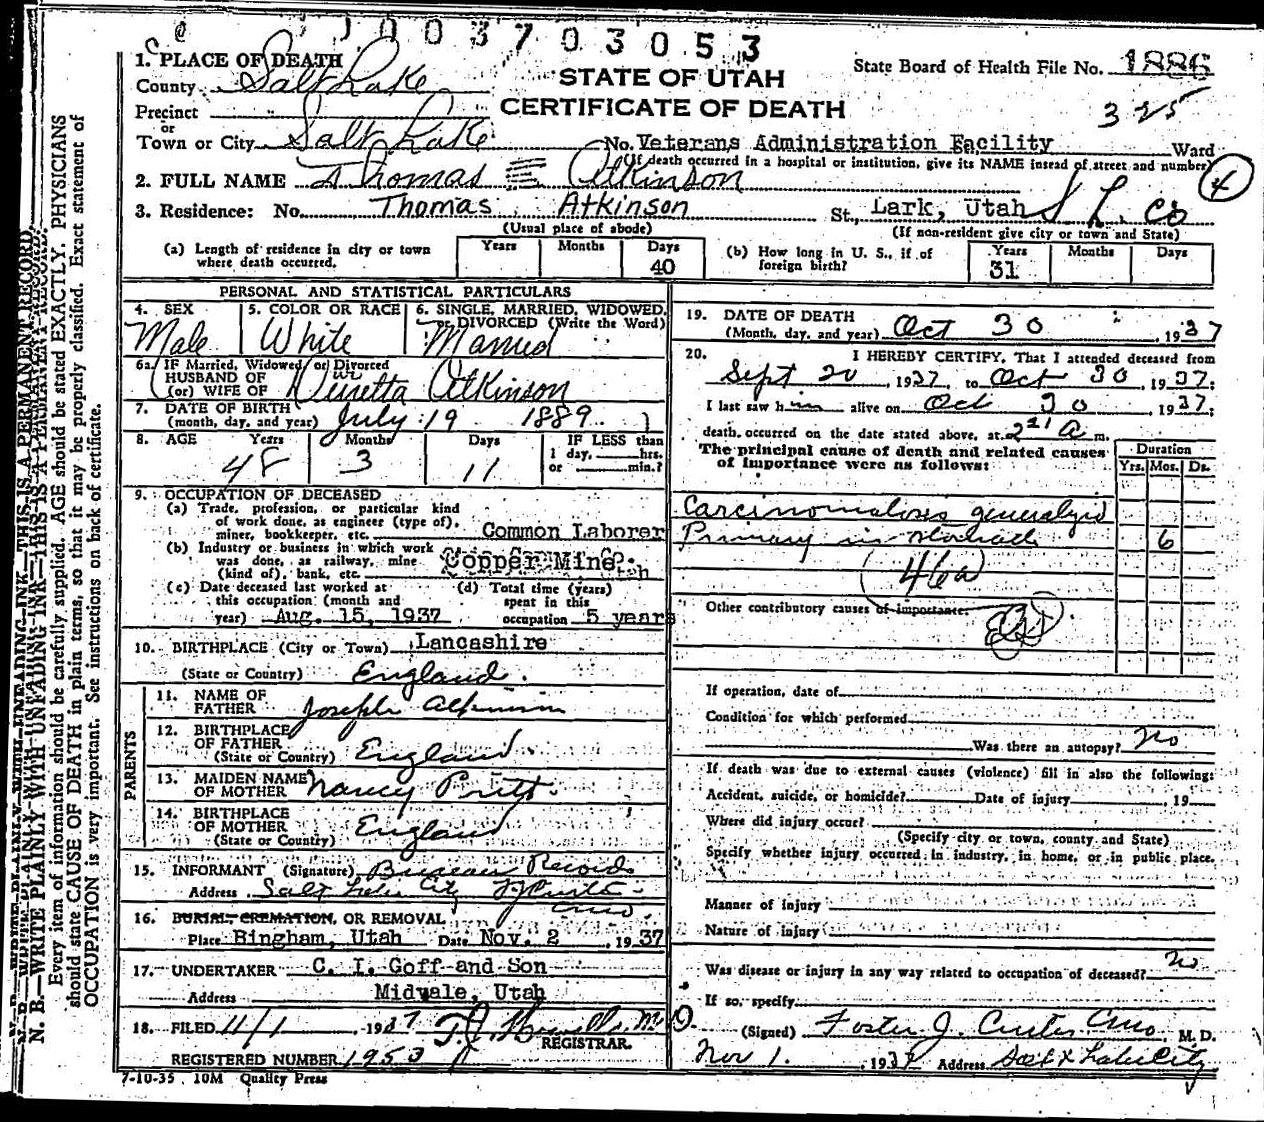 1003703053
1. PLACE OF DEATH
County Salt Lake
STATE OF UTAH
CERTIFICATE OF DEATH
State Board of Health File No. 1886
325
Precinct
or
Town or City Salt Lake No. Veterans Administration Facility Ward
(If death occurred in a hospital or institution, give its NAME instead of street and number)
4
2. FULL NAME Thomas Atkinson
3. Residence: No. Thomas Atkinson St., Lark, Utah S L Co
(Usual place of abode) (If non-resident give city or town and State)
(a) Length of residence in city or town where death occurred. Years Months Days 40
(b) How long in U. S., if of foreign birth? Years 31 Months Days
PERSONAL AND STATISTICAL PARTICULARS
4. SEX Male
5. COLOR OR RACE White
6. SINGLE, MARRIED, WIDOWED, or DIVORCED (Write the Word) Married
6a. IF Married, Widowed, or Divorced
HUSBAND OF
(or) WIFE OF Atkinson
7. DATE OF BIRTH
(month, day, and year) July 19 1889
8. AGE Years 48 Months 3 Days 11 IF LESS than 1 day, hrs. or min.?
9. OCCUPATION OF DECEASED
(a) Trade, profession, or particular kind
of work done, as engineer (type of),
miner, bookkeeper, etc. Common Laborer
(b) Industry or business in which work
was done, as railway, mine
(kind of), bank, etc. Copper Mine
(c) Date deceased last worked at
this occupation (month and
year) Aug. 15, 1937
(d) Total time (years)
spent in this
occupation 5 years
10. BIRTHPLACE (City or Town) Lancashire
(State or Country) England.
PARENTS
11. NAME OF
FATHER Joseph Atkinson
12. BIRTHPLACE
OF FATHER
(State or Country) England
13. MAIDEN NAME
OF MOTHER Nancy Pritt.
14. BIRTHPLACE
OF MOTHER
(State or Country) England
15. INFORMANT (Signature) Bureau Records
Address Salt Lake City
16. BURIAL, CREMATION, OR REMOVAL
Place Bingham, Utah Date Nov. 2, 1937
17. UNDERTAKER C. I. Goff and Son
Address Midvale, Utah
18. FILED 11/1 1937 M D.
REGISTRAR.
REGISTERED NUMBER 1953
7-10-35 10M Quality Press
19. DATE OF DEATH
(Month, day, and year) Oct 30, 1937
20. I HEREBY CERTIFY, That I attended deceased from
Sept 20, 1937, to Oct 30, 1937;
I last saw him alive on Oct 30, 1937;
death occurred on the date stated above, at 2 21 A m.
The principal cause of death and related causes
of importance were as follows:
Duration
Yrs. Mos. Ds.
Carcinomatosis generalized
Primary in stomach 6
46a
Other contributory causes of importance:
If operation, date of
Condition for which performed
Was there an autopsy? No
If death was due to external causes (violence) fill in also the following:
Accident, suicide, or homicide? Date of injury , 19
Where did injury occur?
(Specify city or town, county and State)
Specify whether injury occurred in industry, in home, or in public place.
Manner of injury
Nature of injury
Was disease or injury in any way related to occupation of deceased? No
If so, specify
(Signed) Foster J. Curtis CMO, M. D.
Nov 1, 1937 Address Salt Lake City
N. B.—WRITE PLAINLY WITH UNFADING INK—THIS IS A PERMANENT RECORD.
Every item of information should be carefully supplied. AGE should be stated EXACTLY. PHYSICIANS
should state CAUSE OF DEATH in plain terms, so that it may be properly classified. Exact statement of
OCCUPATION is very important. See instructions on back of certificate.